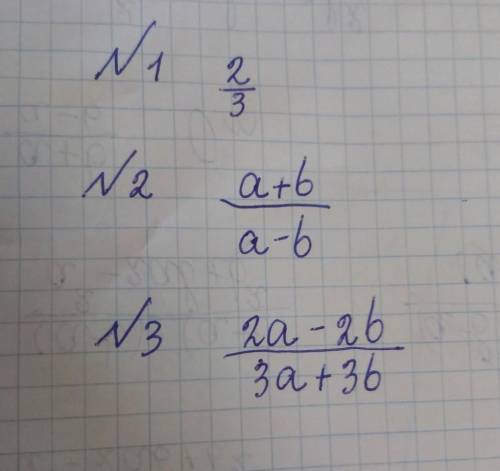 №1 2/3
№2 (a+b)/(a-b)
№3 (2a-2b)/(3a+3b)